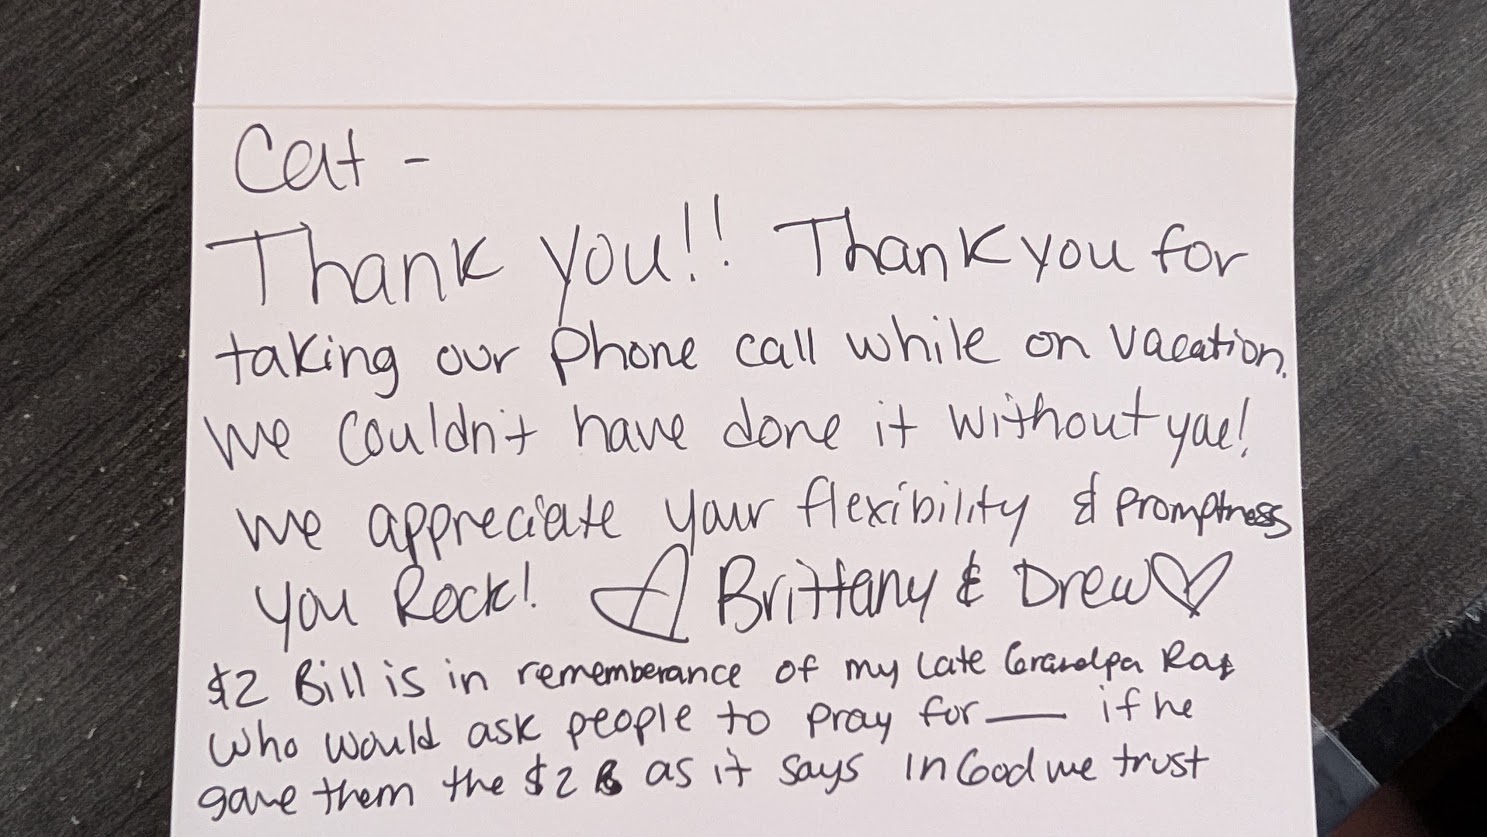 Cat -
Thank you!! Thank you for
taking our phone call while on vacation.
We couldn't have done it without you!
We appreciate your flexibility & promptness
You Rock! Brittany & Drew
$2 Bill is in rememberance of my late Grandpa
who would ask people to pray for — if he
gave them the $2 as it says In God we trust